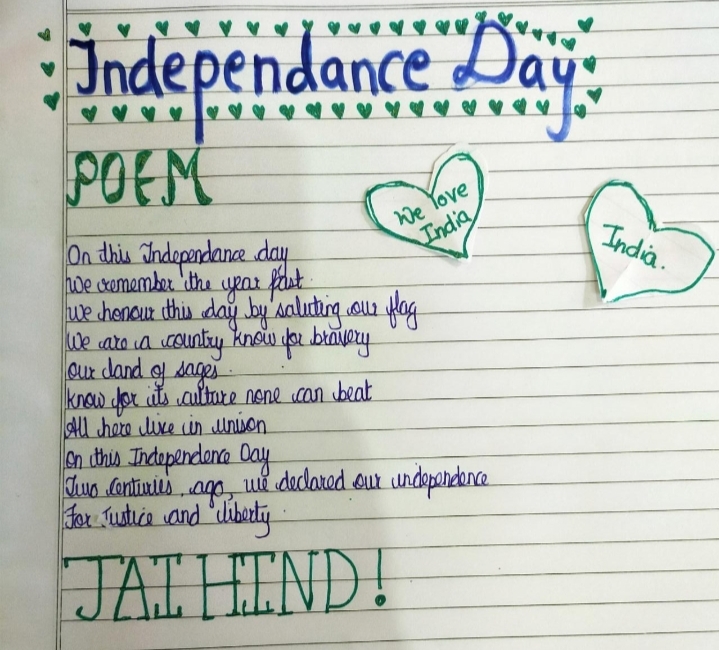 Independance Day
POEM
We love
India
India.
On this Independance day
We remember the year past.
We honour this day by saluting our flag
We are a country know for bravery
our land of sages.
know for its culture none can beat
All here live in unison
On this Independence Day
Two Centuries, ago, we declared our independence
For Justice and liberty.
JAI HIND!